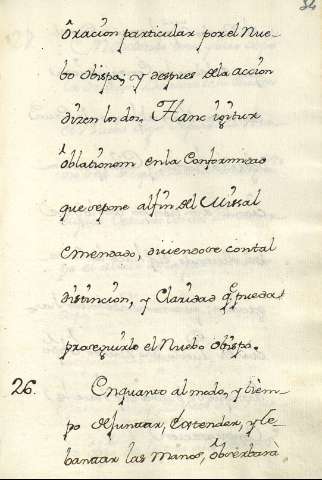 34
oracion particular por el Nue-
bo obispo; y despues de la accion
dizen los dos, Hanc igitur
oblationem en la Conformidad
que se pone al fin del Missal
emendado, diciendose con tal
distincion, y Claridad q.e pueda
proseguirlo el Nuebo obispo.
26. Enquanto al modo, y tiem-
po de juntar, estender, y le-
bantar las manos, observará